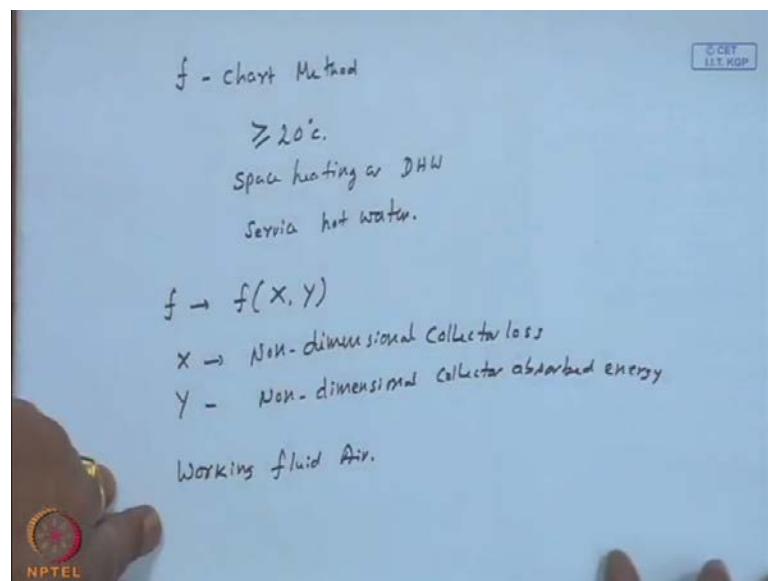 © CET
I.I.T. KGP
f - Chart Method
≥ 20°c.
Space heating or DHW
Service hot water.
f → f(X, Y)
X → Non-dimensional Collector loss
Y - Non-dimensional Collector absorbed energy
Working fluid Air.
NPTEL